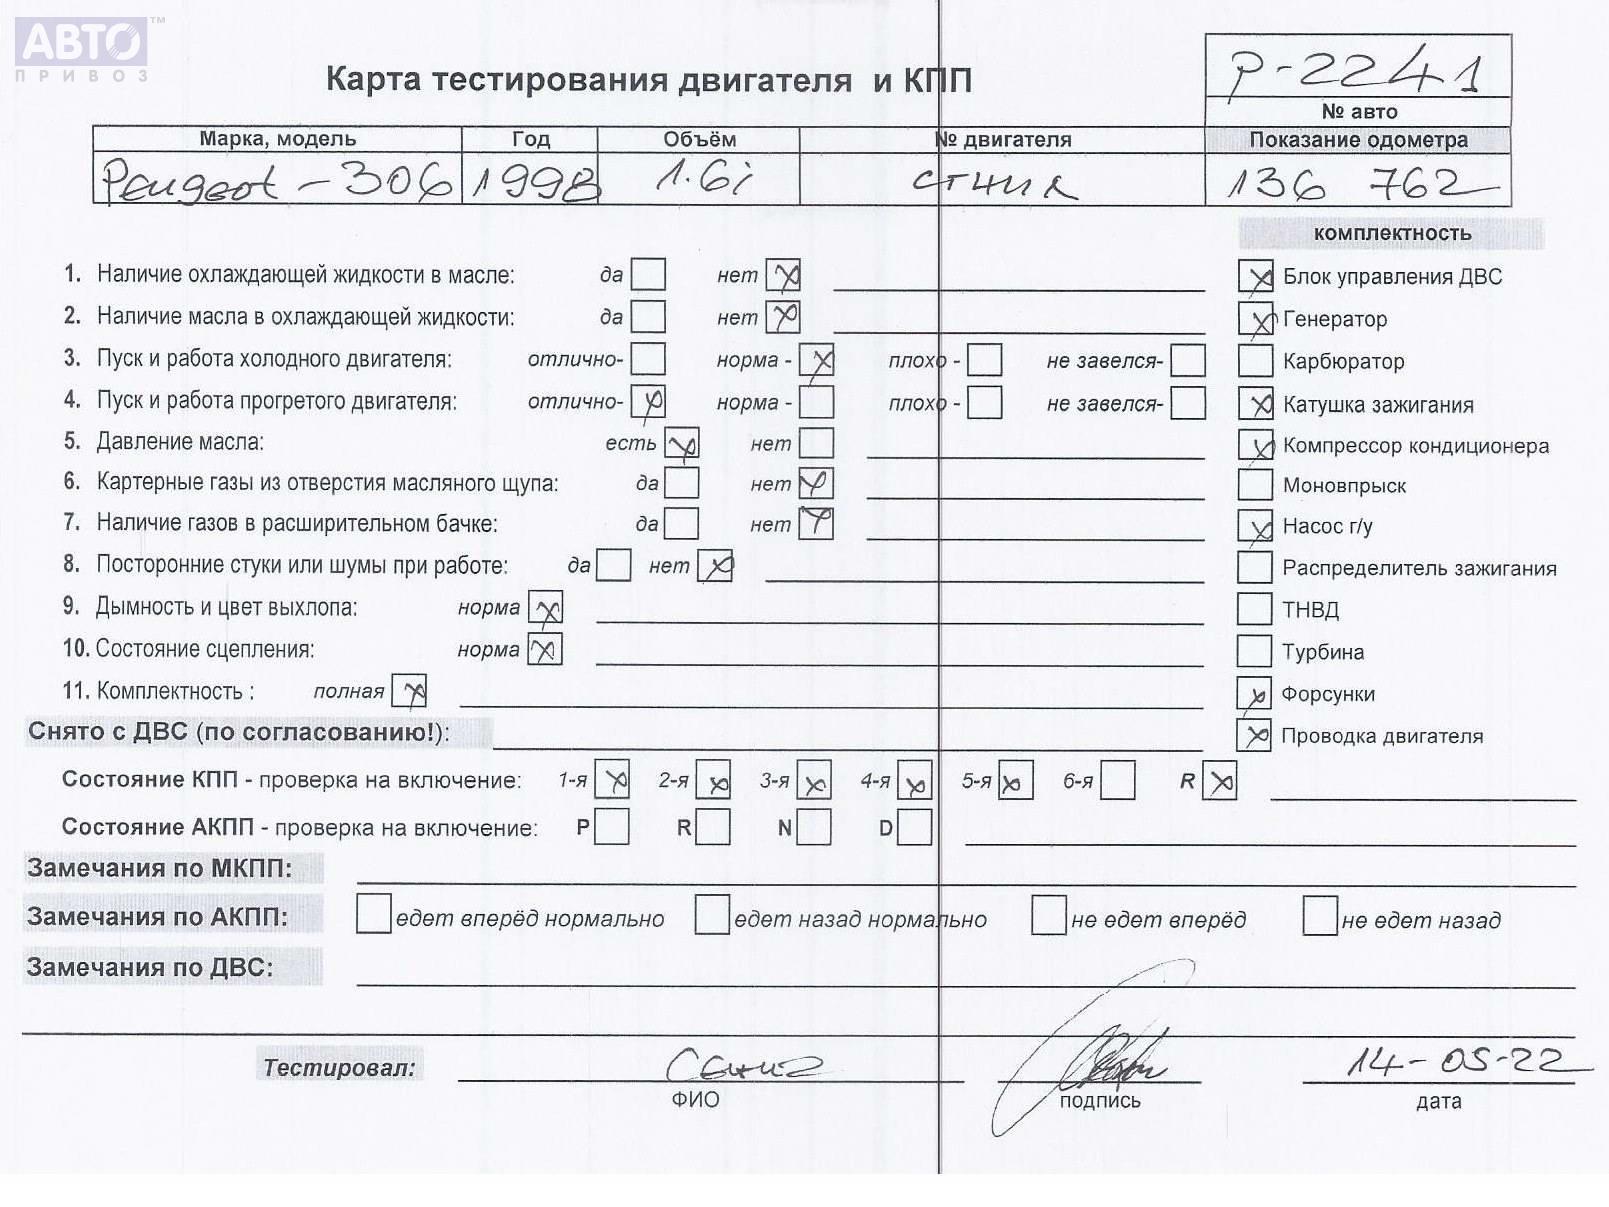 АВТО ™
ПРИВОЗ
Карта тестирования двигателя и КПП
P-2241
№ авто
Марка, модель Год Объём № двигателя Показание одометра
Peugeot-306 1998 1.6i 136 762
комплектность
1. Наличие охлаждающей жидкости в масле: да нет Блок управления ДВС
2. Наличие масла в охлаждающей жидкости: да нет Генератор
3. Пуск и работа холодного двигателя: отлично- норма - плохо - не завелся- Карбюратор
4. Пуск и работа прогретого двигателя: отлично- норма - плохо - не завелся- Катушка зажигания
5. Давление масла: есть нет Компрессор кондиционера
6. Картерные газы из отверстия масляного щупа: да нет Моновпрыск
7. Наличие газов в расширительном бачке: да нет Насос г/у
8. Посторонние стуки или шумы при работе: да нет Распределитель зажигания
9. Дымность и цвет выхлопа: норма ТНВД
10. Состояние сцепления: норма Турбина
11. Комплектность : полная Форсунки
Снято с ДВС (по согласованию!): Проводка двигателя
Состояние КПП - проверка на включение: 1-я 2-я 3-я 4-я 5-я 6-я R
Состояние АКПП - проверка на включение: P R N D
Замечания по МКПП:
Замечания по АКПП: едет вперёд нормально едет назад нормально не едет вперёд не едет назад
Замечания по ДВС:
Тестировал: 14-05-22
ФИО подпись дата